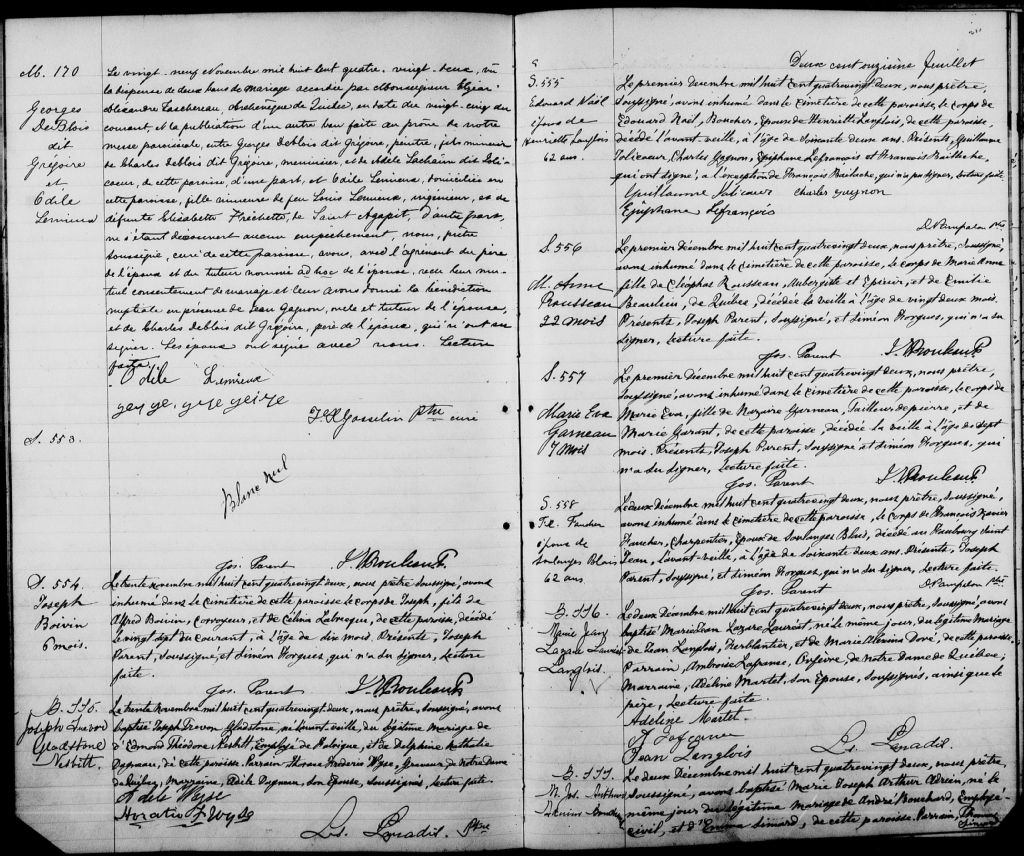 M. 170
Georges
DeBlois
dit
Grégoire
et
Odile
Lemieux
Le vingt-neuf Novembre mil huit cent quatre-vingt-deux, vû
la dispense de deux bans de mariage accordée par Monseigneur Elzéar
Alexandre Taschereau, Archevêque de Québec, en date du vingt-cinq du
courant, et la publication d'un autre ban faite au prône de notre
messe paroissiale, entre Georges Deblois dit Grégoire, peintre, fils mineur
de Charles Deblois dit Grégoire, menuisier, et de Adèle
de cette paroisse, d'une part, et Odile Lemieux, domiciliée en
cette paroisse, fille mineure de feu Louis Lemieux, ingénieur, et de
défunte Elisabeth Fréchette, de Saint Agapit, d'autre part,
ne s'étant découvert aucun empêchement, nous, prêtre
soussigné, curé de cette paroisse, avons, avec l'agrément du père
de l'époux et du tuteur nommé ad hoc de l'épouse, reçu leur mu-
tuel consentement de mariage et leur avons donné la bénédiction
nuptiale en présence de Jean Gagnon, oncle et tuteur de l'épouse,
et de Charles Deblois dit Grégoire, père de l'époux, qui n'ont su
signer. Les époux ont signé avec nous. Lecture
faite.
Odile Lemieux
F. X. Gosselin Ptre curé
S. 553.
Blanc nul
Jos. Parent
S. 554
Joseph
Boivin
6 mois.
Le trente novembre mil huit cent quatre vingt deux, nous prêtre soussigné, avons
inhumé dans le cimetière de cette paroisse le corps de Joseph, fils de
Alfred Boivin, Corroyeur, et de Célina Labrecque, de cette paroisse, décédé
le vingt sept du courant, à l'âge de six mois. Présents, Joseph
Parent, soussigné, et Siméon Horgues, qui n'a su signer, Lecture
faite.
Jos. Parent
Joseph
Gladstone
Nesbitt.
Le trente Novembre mil huit cent quatrevingt deux, nous prêtre, soussigné, avons
baptisé Joseph Trevor Gladstone, né l'avant veille, du légitime mariage de
d'Edmond Théodore Nesbitt, Employé de Fabrique, et de Delphine Nathalie
Dagneau, de cette paroisse. Parrain Horace Frederic Wyse, Graveur, de Notre Dame
de Québec, Marraine, Adèle Dagneau, son Epouse, soussignés, lecture faite.
Adèle Wyse
Horatio F. Wyse
Ptre
Deux cent onzième feuillet
S. 555
Edouard Noël
époux de
Henriette Langlois
62 ans.
Le premier décembre mil huit cent quatrevingt deux, nous prêtre,
soussigné, avons inhumé dans le cimetière de cette paroisse, le corps de
Edouard Noël, Boucher, Epoux de Henriette Langlois, de cette paroisse,
décédé l'avant veille, à l'âge de soixante deux ans. Présents, Guillaume
Jolicoeur, Charles Gagnon, Epiphane Lefrançois et François
qui ont signé, à l'exception de François qui n'a pu signer, lecture faite
Guillaume Jolicoeur Charles Gagnon
Epiphane Lefrançois
S. 556
M. Anne
Rousseau
22 mois
Le premier décembre mil huit cent quatrevingt deux, nous prêtre, soussigné,
avons inhumé dans le cimetière de cette paroisse, le corps de Marie Anne
fille de Cléophas Rousseau, Aubergiste et Epicier, et de Emilie
Beaulieu, de Québec, décédée la veille à l'âge de vingt deux mois.
Présents, Joseph Parent, soussigné, et Siméon Horgues, qui n'a su
signer, Lecture faite.
Jos. Parent
S. 557
Marie Eva
Garneau
7 mois
Le premier Décembre mil huit cent quatrevingt deux, nous prêtre,
soussigné, avons inhumé dans le cimetière de cette paroisse, le corps de
Marie Eva, fille de Nazaire Garneau, Tailleur de pierre, et de
Marie Garant, de cette paroisse, décédée la veille à l'âge de sept
mois. Présents, Joseph Parent, soussigné et Siméon Horgues, qui
n'a su signer, Lecture faite.
Jos. Parent
S. 558
F.X. Faucher
époux de
Soulanges Blais
62 ans.
Le deux Décembre mil huit cent quatrevingt deux, nous prêtre, soussigné,
avons inhumé dans le cimetière de cette paroisse, le corps de François Xavier
Faucher, Charpentier, Epoux de Soulanges Blais, décédé au Faubourg Saint
Jean, l'avant-veille, à l'âge de soixante deux ans. Présents, Joseph
Parent, soussigné, et Siméon Horgues, qui n'a su signer, Lecture faite.
Jos. Parent
Marie Jean
Lazare Lauréat
Langlois.
Le deux Décembre mil huit cent quatrevingt deux, nous prêtre, soussigné, avons
baptisé Marie Jean Lazare Lauréat, né le même jour, du légitime Mariage
de Jean Langlois, Ferblantier, et de Marie Alvina Doré, de cette paroisse
Parrain, Ambroise Lafrance, Orfèvre, de Notre Dame de Québec;
Marraine, Adéline Martel, son Epouse, soussignés, ainsi que le
père, Lecture faite.
Adeline Martel.
A Lafrance
Jean Langlois
M. Jos. Arthur
Le deux Décembre mil huit cent quatrevingt deux, nous prêtre,
soussigné, avons baptisé Marie Joseph Arthur Adrien, né le
même jour du légitime mariage de André Bouchard, Employé
civil, et d'Emma Simard, de cette paroisse. Parrain, Thomas
Simard